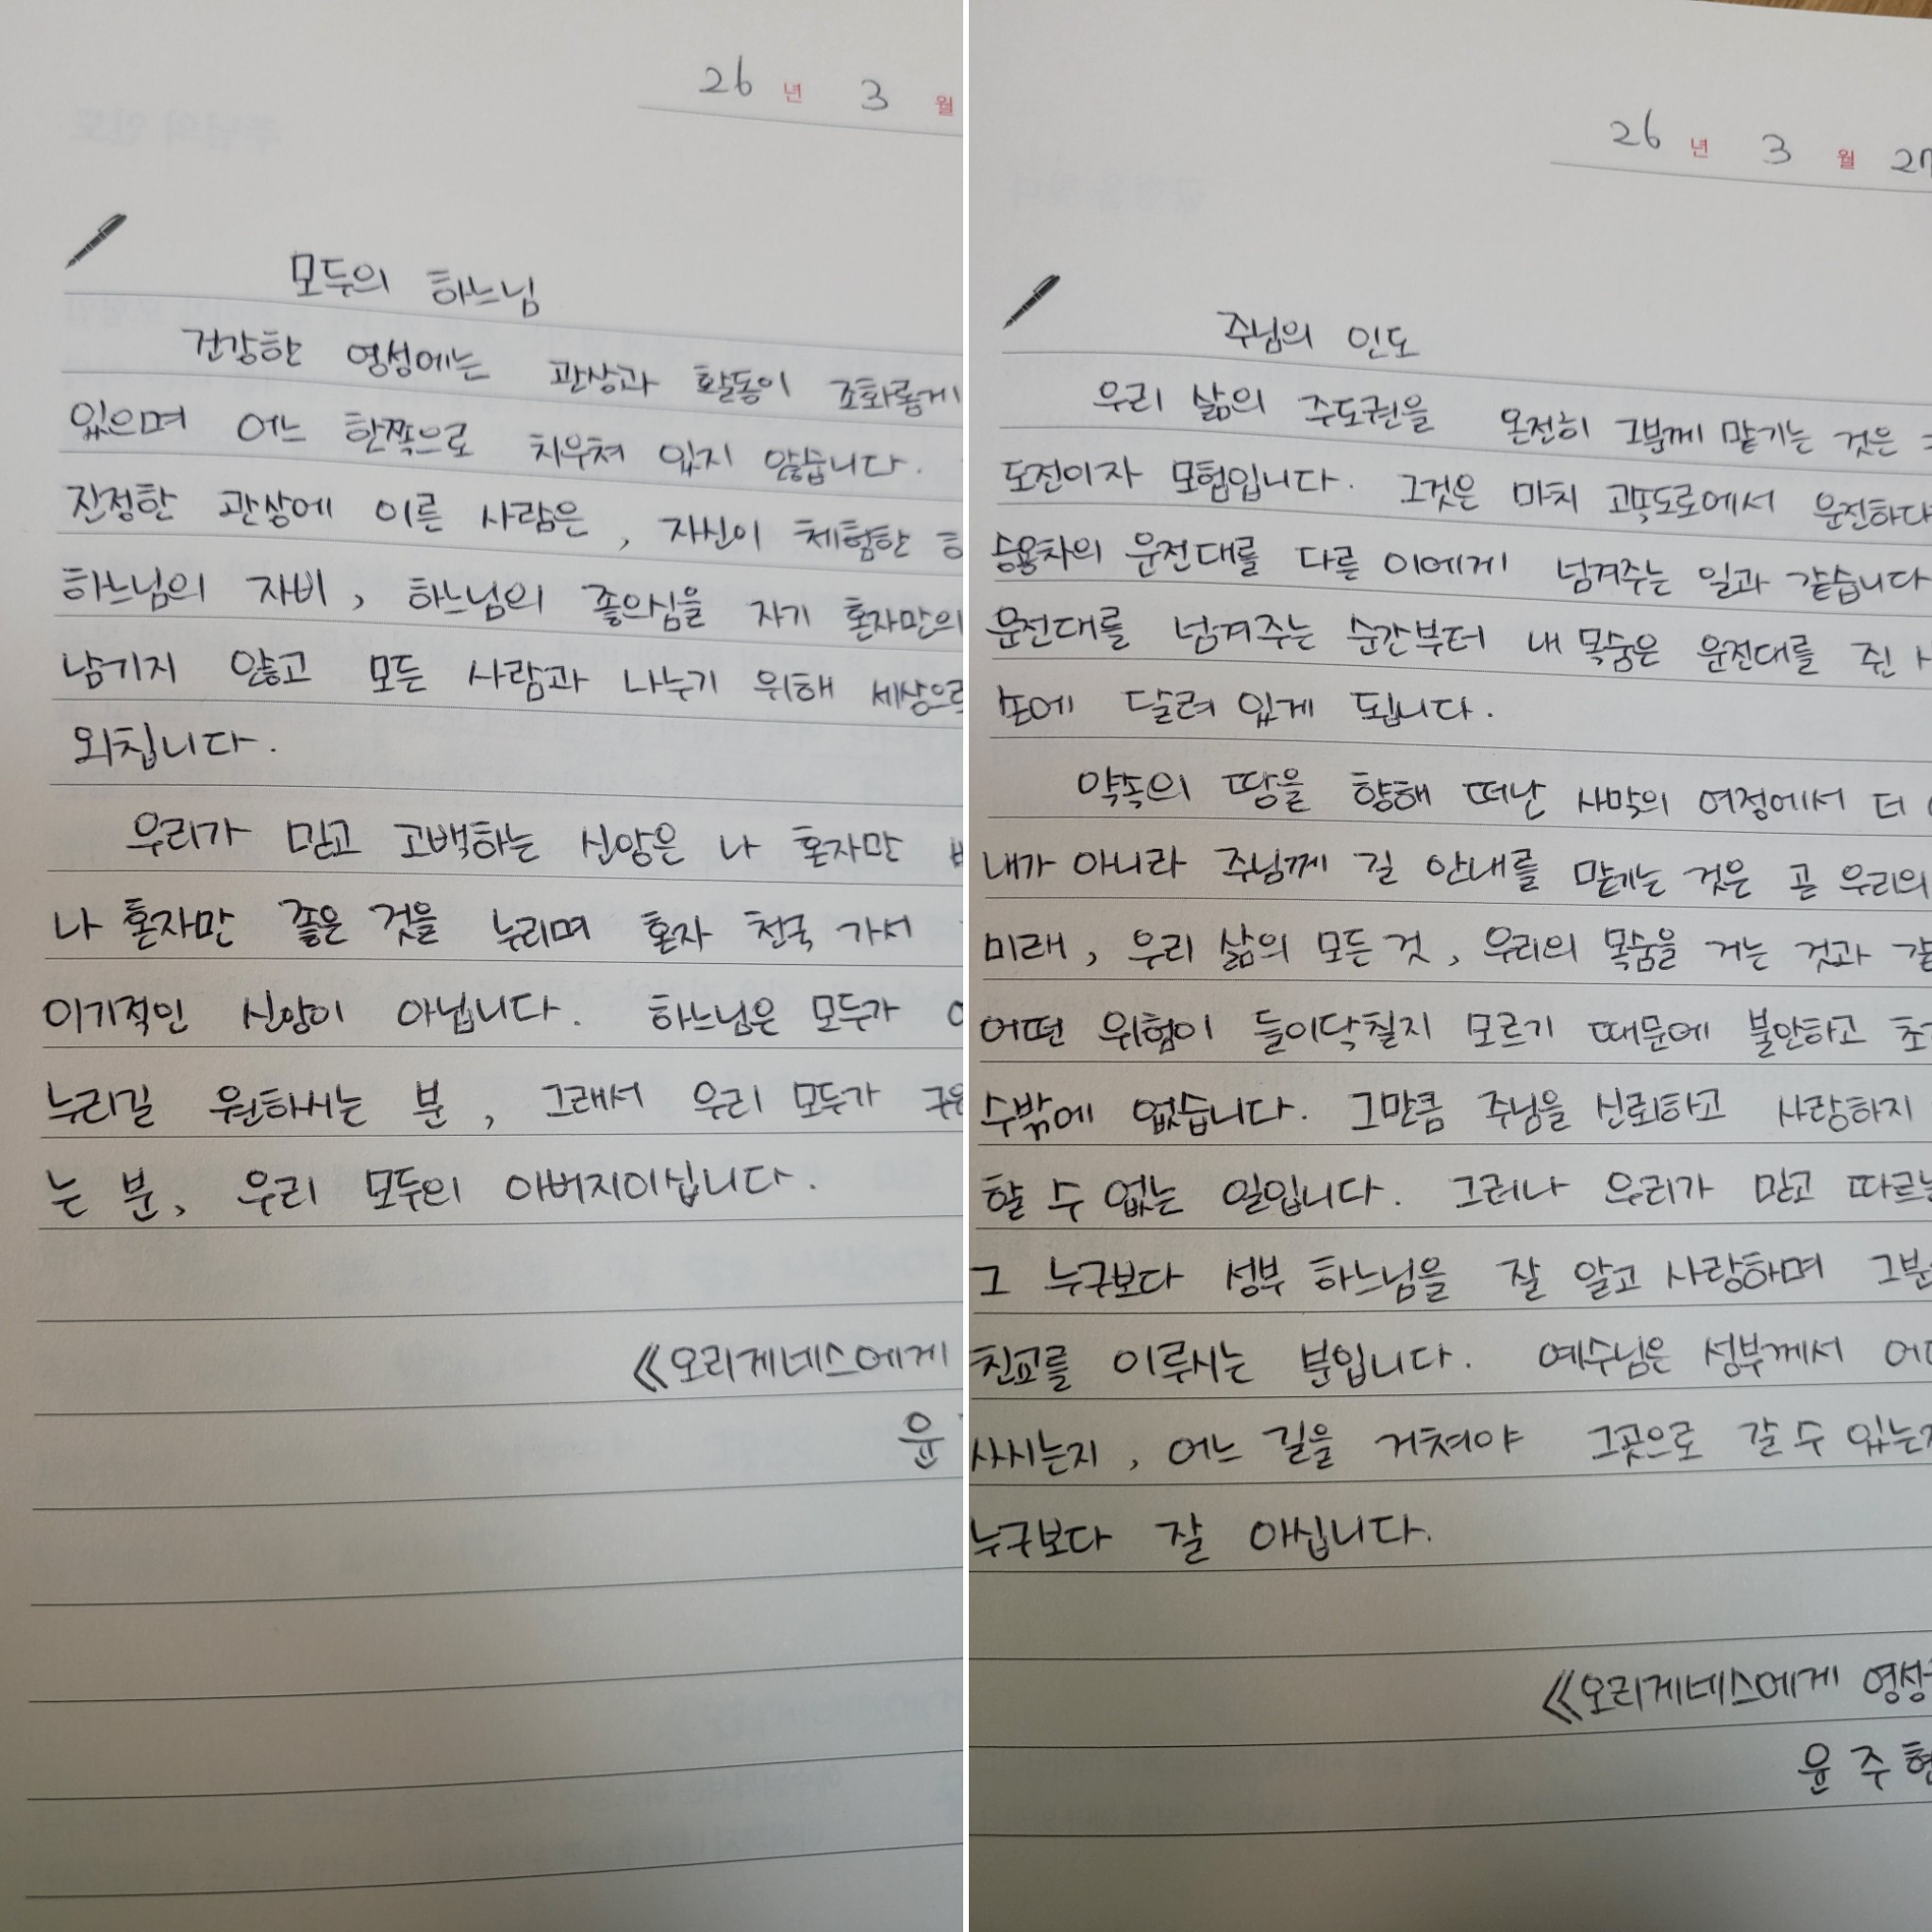 26 년 3 월
모두의 하느님
건강한 영성에는 관상과 활동이 조화롭게
있으며 어느 한쪽으로 치우쳐 있지 않습니다.
진정한 관상에 이른 사람은, 자신이 체험한
하느님의 자비, 하느님의 좋으심을 자기 혼자만의
남기지 않고 모든 사람과 나누기 위해 세상으로
외칩니다.
우리가 믿고 고백하는 신앙은 나 혼자만
나 혼자만 좋은 것을 누리며 혼자 천국 가서
이기적인 신앙이 아닙니다. 하느님은 모두가
누리길 원하시는 분, 그래서 우리 모두가
는 분, 우리 모두의 아버지이십니다.
《오리게네스에게
윤
26 년 3 월 27
주님의 인도
우리 삶의 주도권을 온전히 그분께 맡기는 것은
도전이자 모험입니다. 그것은 마치 고속도로에서 운전하다
승용차의 운전대를 다른 이에게 넘겨주는 일과 같습니다
운전대를 넘겨주는 순간부터 내 목숨은 운전대를 쥔
손에 달려 있게 됩니다.
약속의 땅을 향해 떠난 사막의 여정에서 더
내가 아니라 주님께 길 안내를 맡기는 것은 곧 우리의
미래, 우리 삶의 모든 것, 우리의 목숨을 거는 것과
어떤 위험이 들이닥칠지 모르기 때문에 불안하고
수밖에 없습니다. 그만큼 주님을 신뢰하고 사랑하지
할 수 없는 일입니다. 그러나 우리가 믿고
그 누구보다 성부 하느님을 잘 알고 사랑하며
친교를 이루시는 분입니다. 예수님은 성부께서
사시는지, 어느 길을 거쳐야 그곳으로 갈 수 있는지
누구보다 잘 아십니다.
《오리게네스에게
윤 주